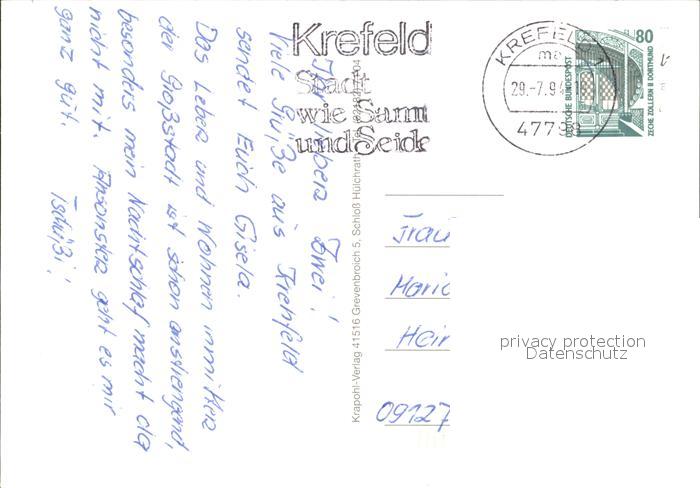 Krefeld
Stadt
wie Samt
und Seide
KREFELD 1
29.-7.9
4779
80
DEUTSCHE BUNDESPOST
ZECHE ZOLLERN II DORTMUND
Ihr lieben Zwei!
Viele Grüße aus Krehfeld
sendet Euch Gisela.
Das Leben und Wohnen inmitten
der Großstadt ist schon anstrengend,
besonders mein Nachtschlaf macht da
nicht mit. Ansonsten geht es mir
ganz gut.
Tschüßi!
Krapohl-Verlag 41516 Grevenbroich 5, Schloß Hülchrath
Frau
Mario
Hein
09127
privacy protection
Datenschutz